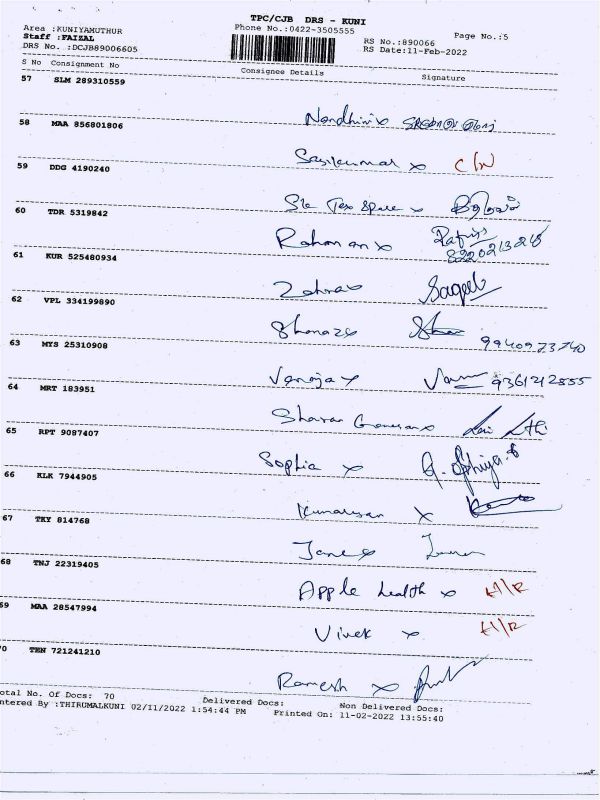 TPC/CJB DRS - KUNI
Area :KUNIYAMUTHUR Phone No.:0422-3505555 Page No.:5
Staff :FAIZAL RS No.:890066
DRS No. :DCJB89006605 RS Date:11-Feb-2022
S No Consignment No Consignee Details Signature
57 SLM 289310559
Nandhini x
58 MAA 856801806
Sasikumar x
59 DDG 4190240
60 TDR 5319842
Rahman x
61 KUR 525480934
Zahra x Saqeeb
62 VPL 334199890
Shanaz x 9940973740
63 MYS 25310908
Vanaja x 9361212555
64 MRT 183951
Sharan
65 RPT 9087407
Sophia x
66 KLK 7944905
Kumaresan x
67 TKY 814768
Jane x
68 TNJ 22319405
Apple health x H/R
69 MAA 28547994
Vivek x H/R
70 TEN 721241210
Ramesh x
Total No. Of Docs: 70 Delivered Docs: Non Delivered Docs:
ntered By :THIRUMALKUNI 02/11/2022 1:54:44 PM Printed On: 11-02-2022 13:55:40